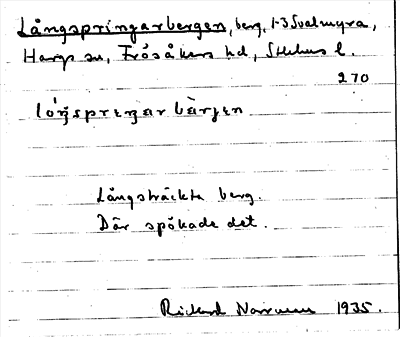 Långspringarbergen, berg, 1-3 Svalmyra,
Hargs sn, Frösåkers hd, Sthlms l.
270
lóŋsprɩŋar bàrjɛn
Långsträckta berg.
Där spökade det.
Rickard 1935.